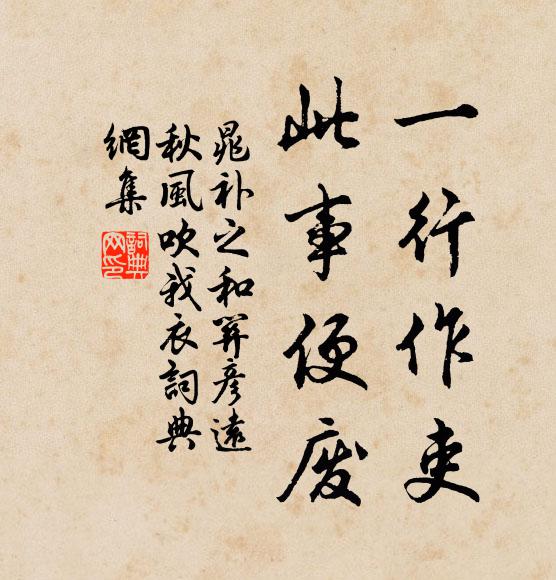 一行作吏
此事便废
晁补之和关彦远
秋風吹我衣詞典
網集
詞典
网印